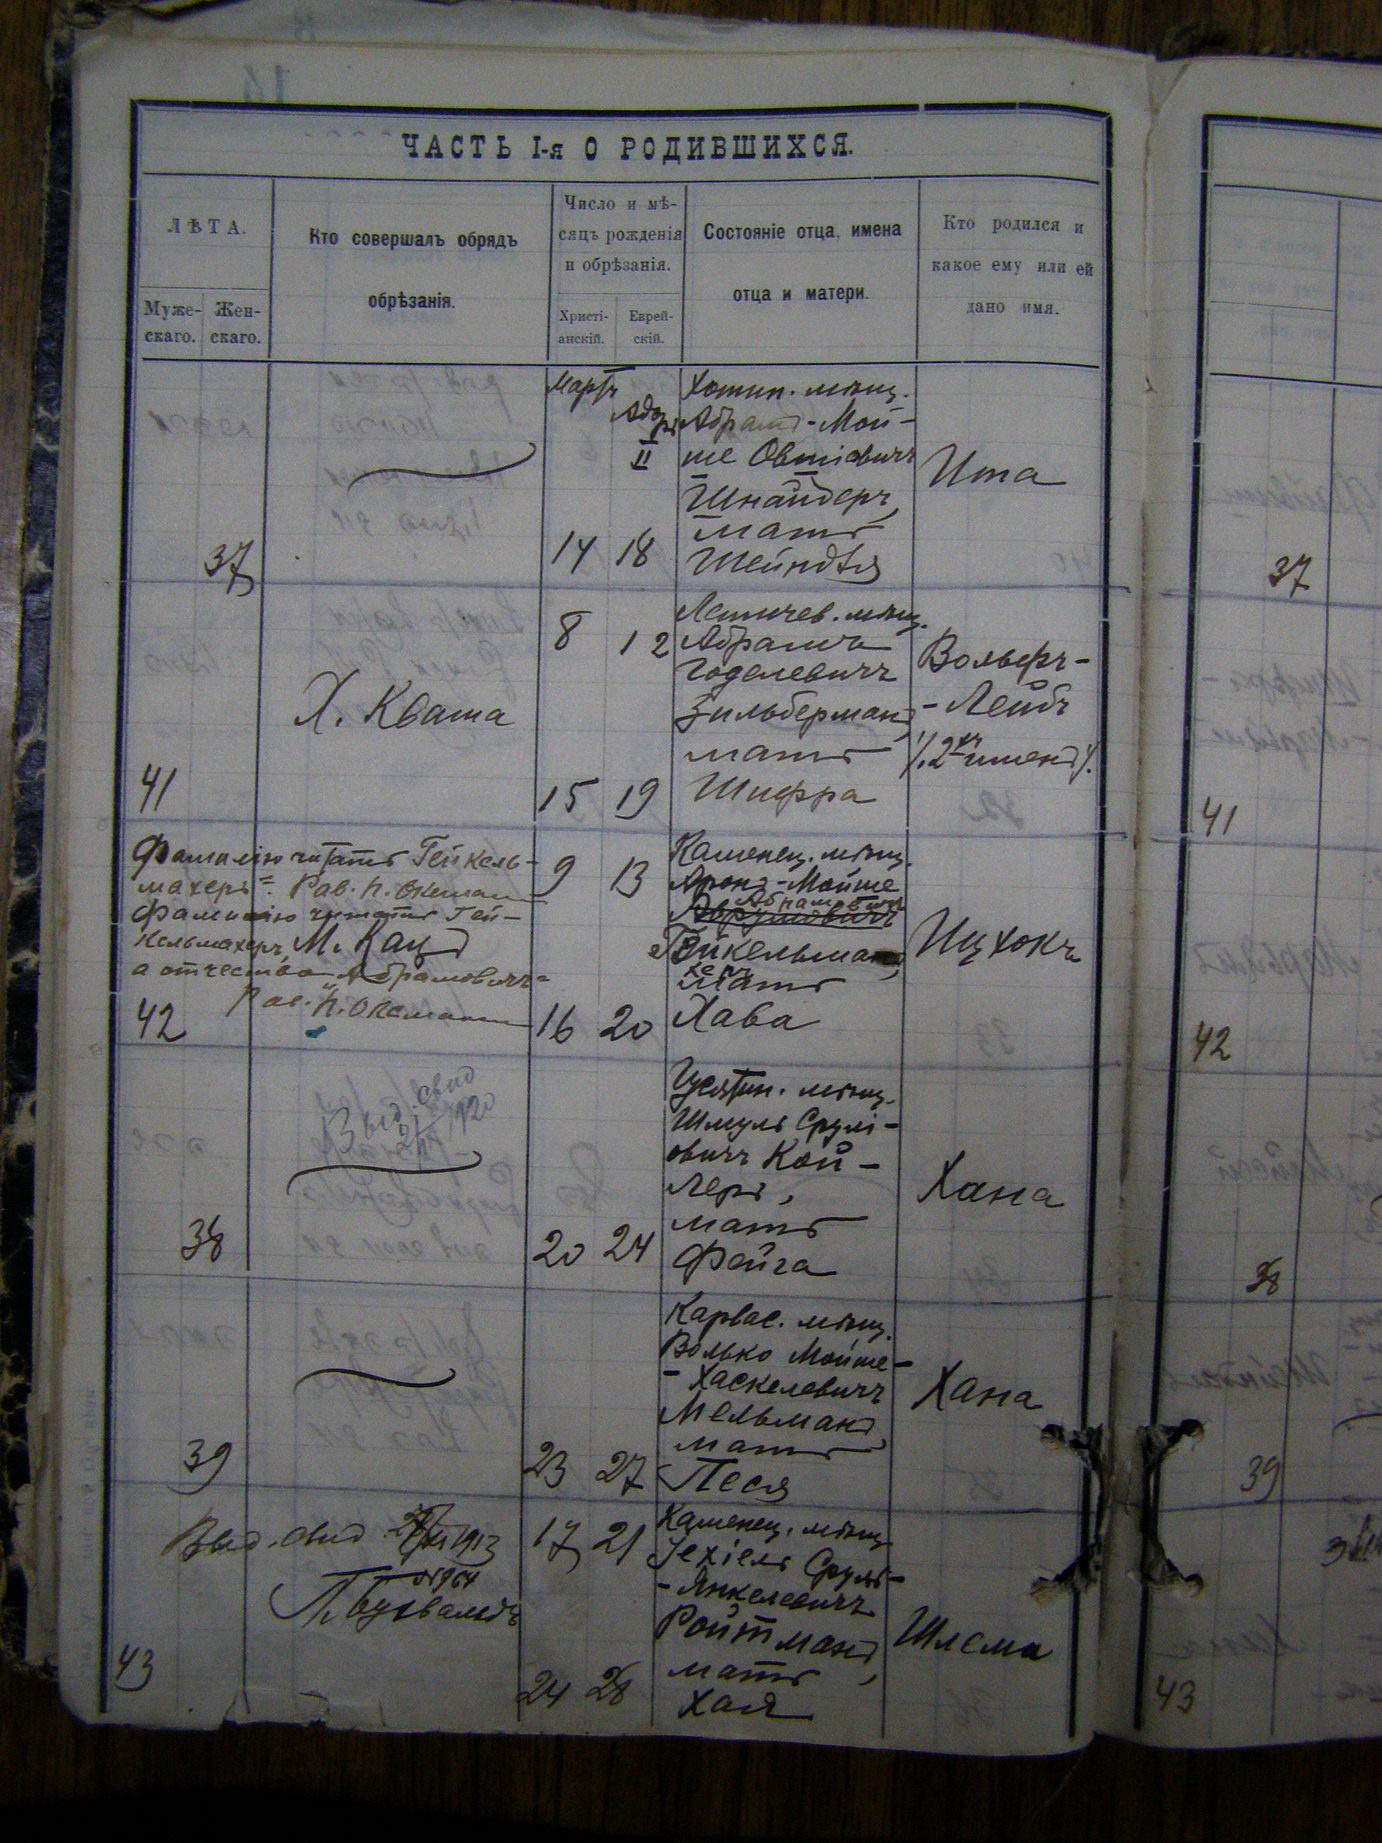 ЧАСТЬ I-я О РОДИВШИХСЯ.
ЛѢТА.
Муже-
скаго.
Жен-
скаго.
Кто совершалъ обрядъ
обрѣзанія.
Число и мѣ-
сяцъ рожденія
и обрѣзанія.
Христі-
анскій.
Еврей-
скій.
Состояніе отца, имена
отца и матери.
Кто родился и
какое ему или ей
дано имя.
37
Мартъ
Адаръ
II
14 18
Хотин. мѣщ.
Абрамъ-Мой-
ше Овшіовичъ
Шнайдеръ,
мать
Шейндля
Ита
37
41
Х. Кваша
8 12
15 19
Летичев. мѣщ.
Абрамъ
Годелевичъ
Зильберманъ,
мать
Шифра
Вольфъ-
-Лейбъ
/.2хъ именъ/.
41
Фамилію читать Гейкель-
махеръ=. Рав. П. Оксман
фамилію читать Гей-
кельмахеръ,
М. Кацъ
а отчество „Абрамовичъ=
Рав. П. Оксман
42
9 13
16 20
Каменец. мѣщ.
Аронъ-Мойше
Абрамовичъ
Гейкельма
херъ
мать
Хава
Ицхокъ
42
38
Выд. свид
20 24
Гусятин. мѣщ.
Шмуль Срулі-
овичъ Кой-
леръ,
мать
Фейга
Хана
38
39
23 27
Карвас. мѣщ.
Волько Мойше-
-Хаскелевичъ
Мельманъ
мать
Песя
Хана
39
Выд. свид. 1913
№964
43
17 21
24 28
Каменец. мѣщ
Іехіель Сруль-
-Янкелевичъ
Ройтманъ,
мать
Хая
Шлема
43